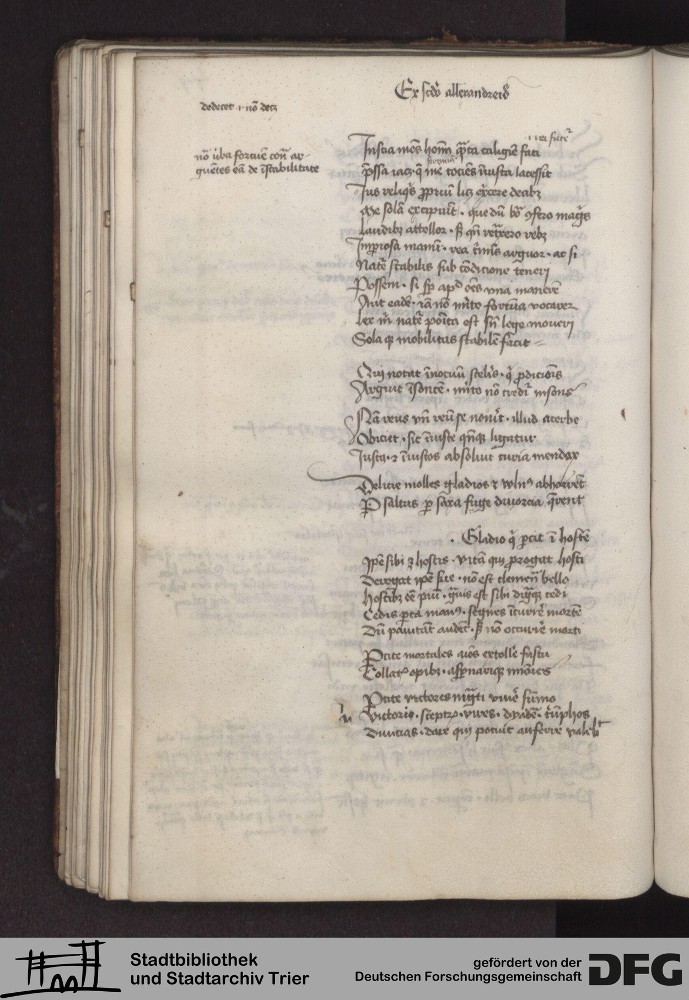 Ex scdo allexandreid
dedecet · i · no decz
no vba fortune contra ar-
guentes ea de istabilitate
Inscia mes hoim qta caligie fati
pssa iacz q me tocies iniusta lacessit
Ius reliqis ppriu licz excere deabz
Me sola excipiunt · que du bo ofero magis
laudibz attollor · si qn retxero rebz
Impiosa manu · rea criminis arguor · ac si
Nate stabilis sub codicione teneri
Possem · si sp apd oes vna manere
Aut eade · ia no mito fortuna vocarer
lex mi nate poita est sn lege moueri
Sola qz mobilitas stabile facit
Qui notat inocuu sceleris · q prodicois
Arguit isonte · mito no credit insons
Na reus vn reu se nouit · illud acerbe
Obicit · sic iuste qnqz ligatur
Iusta · et iniustos absoluit curia mendax
Delicie molles gladios et vulna abhorret
P saltus p saxa fuge diuorcia querent
· Gladio q pcit i hoste
Ipe sibi z hostis · vita qui progat hosti
Derogat ipe sue · no est clemen bello
Hostibz ee piu · quis est sibi
Cedis pca man · segnes icurre morte
Du pauitat audet · si no occurre morti
Pcite mortales aios extolle fastu
Collatis opibz · aspnariqz miores
Pcite victores igrati viue sumo
Victoris · sceptra · vires · dyade · triuphos
Diuicias · dare qui potuit auferre valebit
Stadtbibliothek
und Stadtarchiv Trier
gefördert von der
Deutschen Forschungsgemeinschaft
DFG